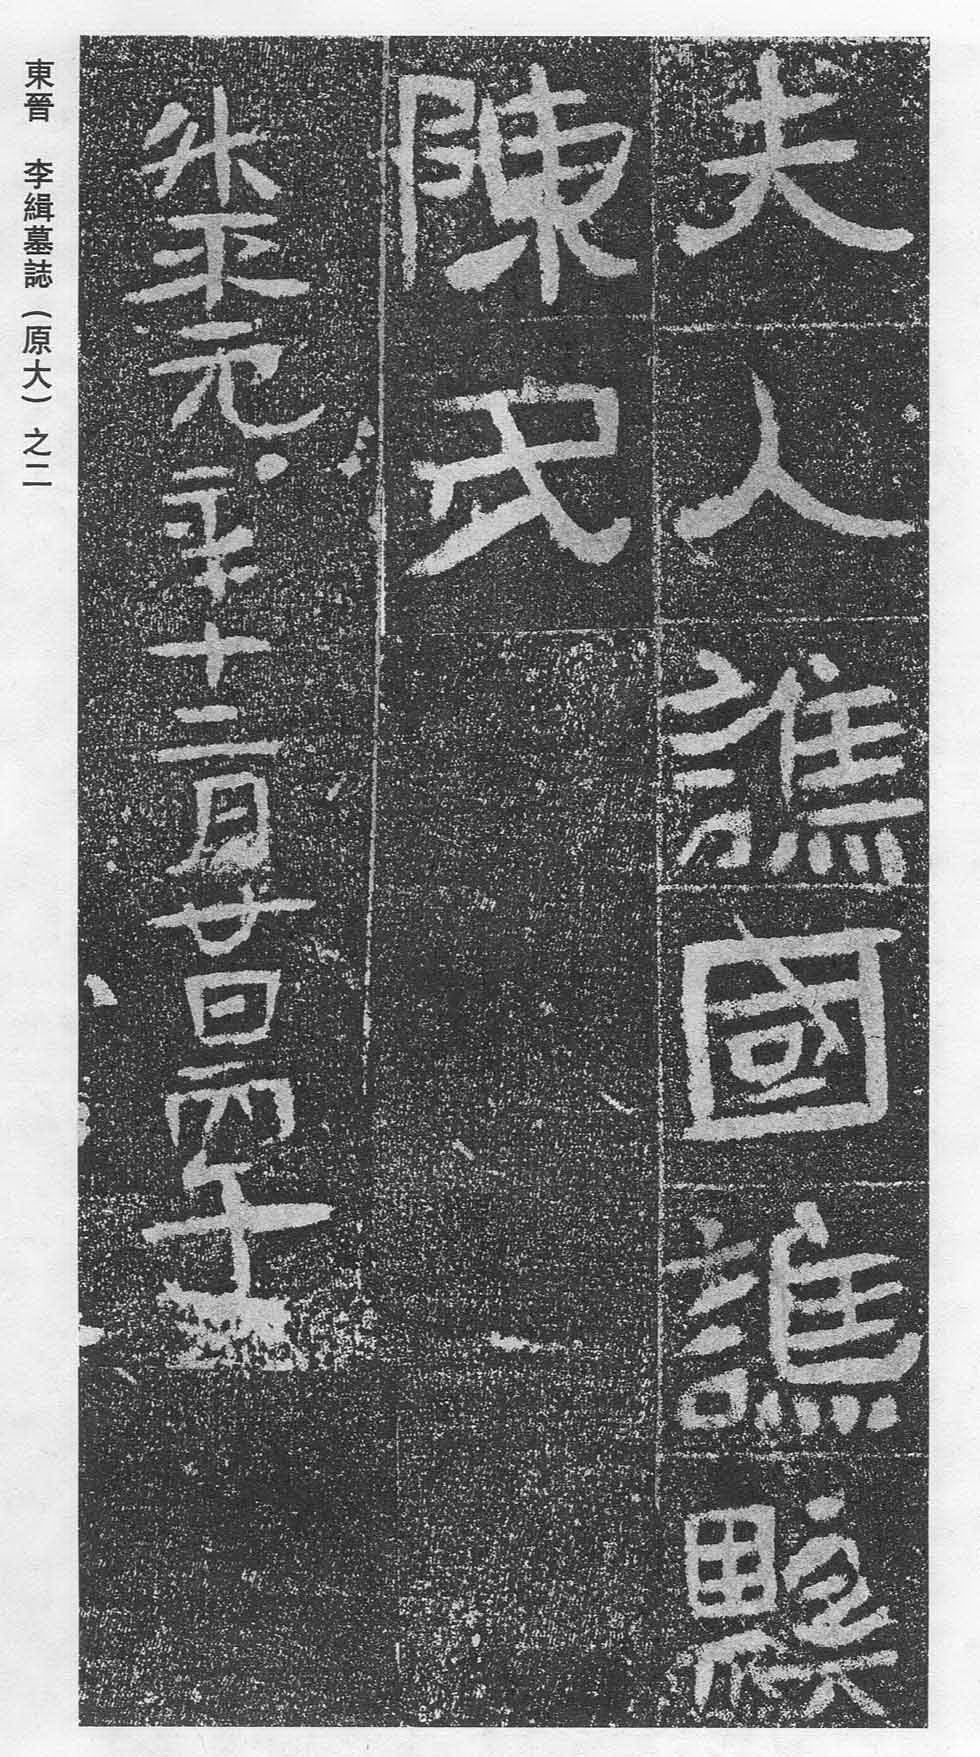 夫人譙國譙縣
陳氏
升平元年十二月廿日丙午
東晉　李緝墓誌（原大）之二